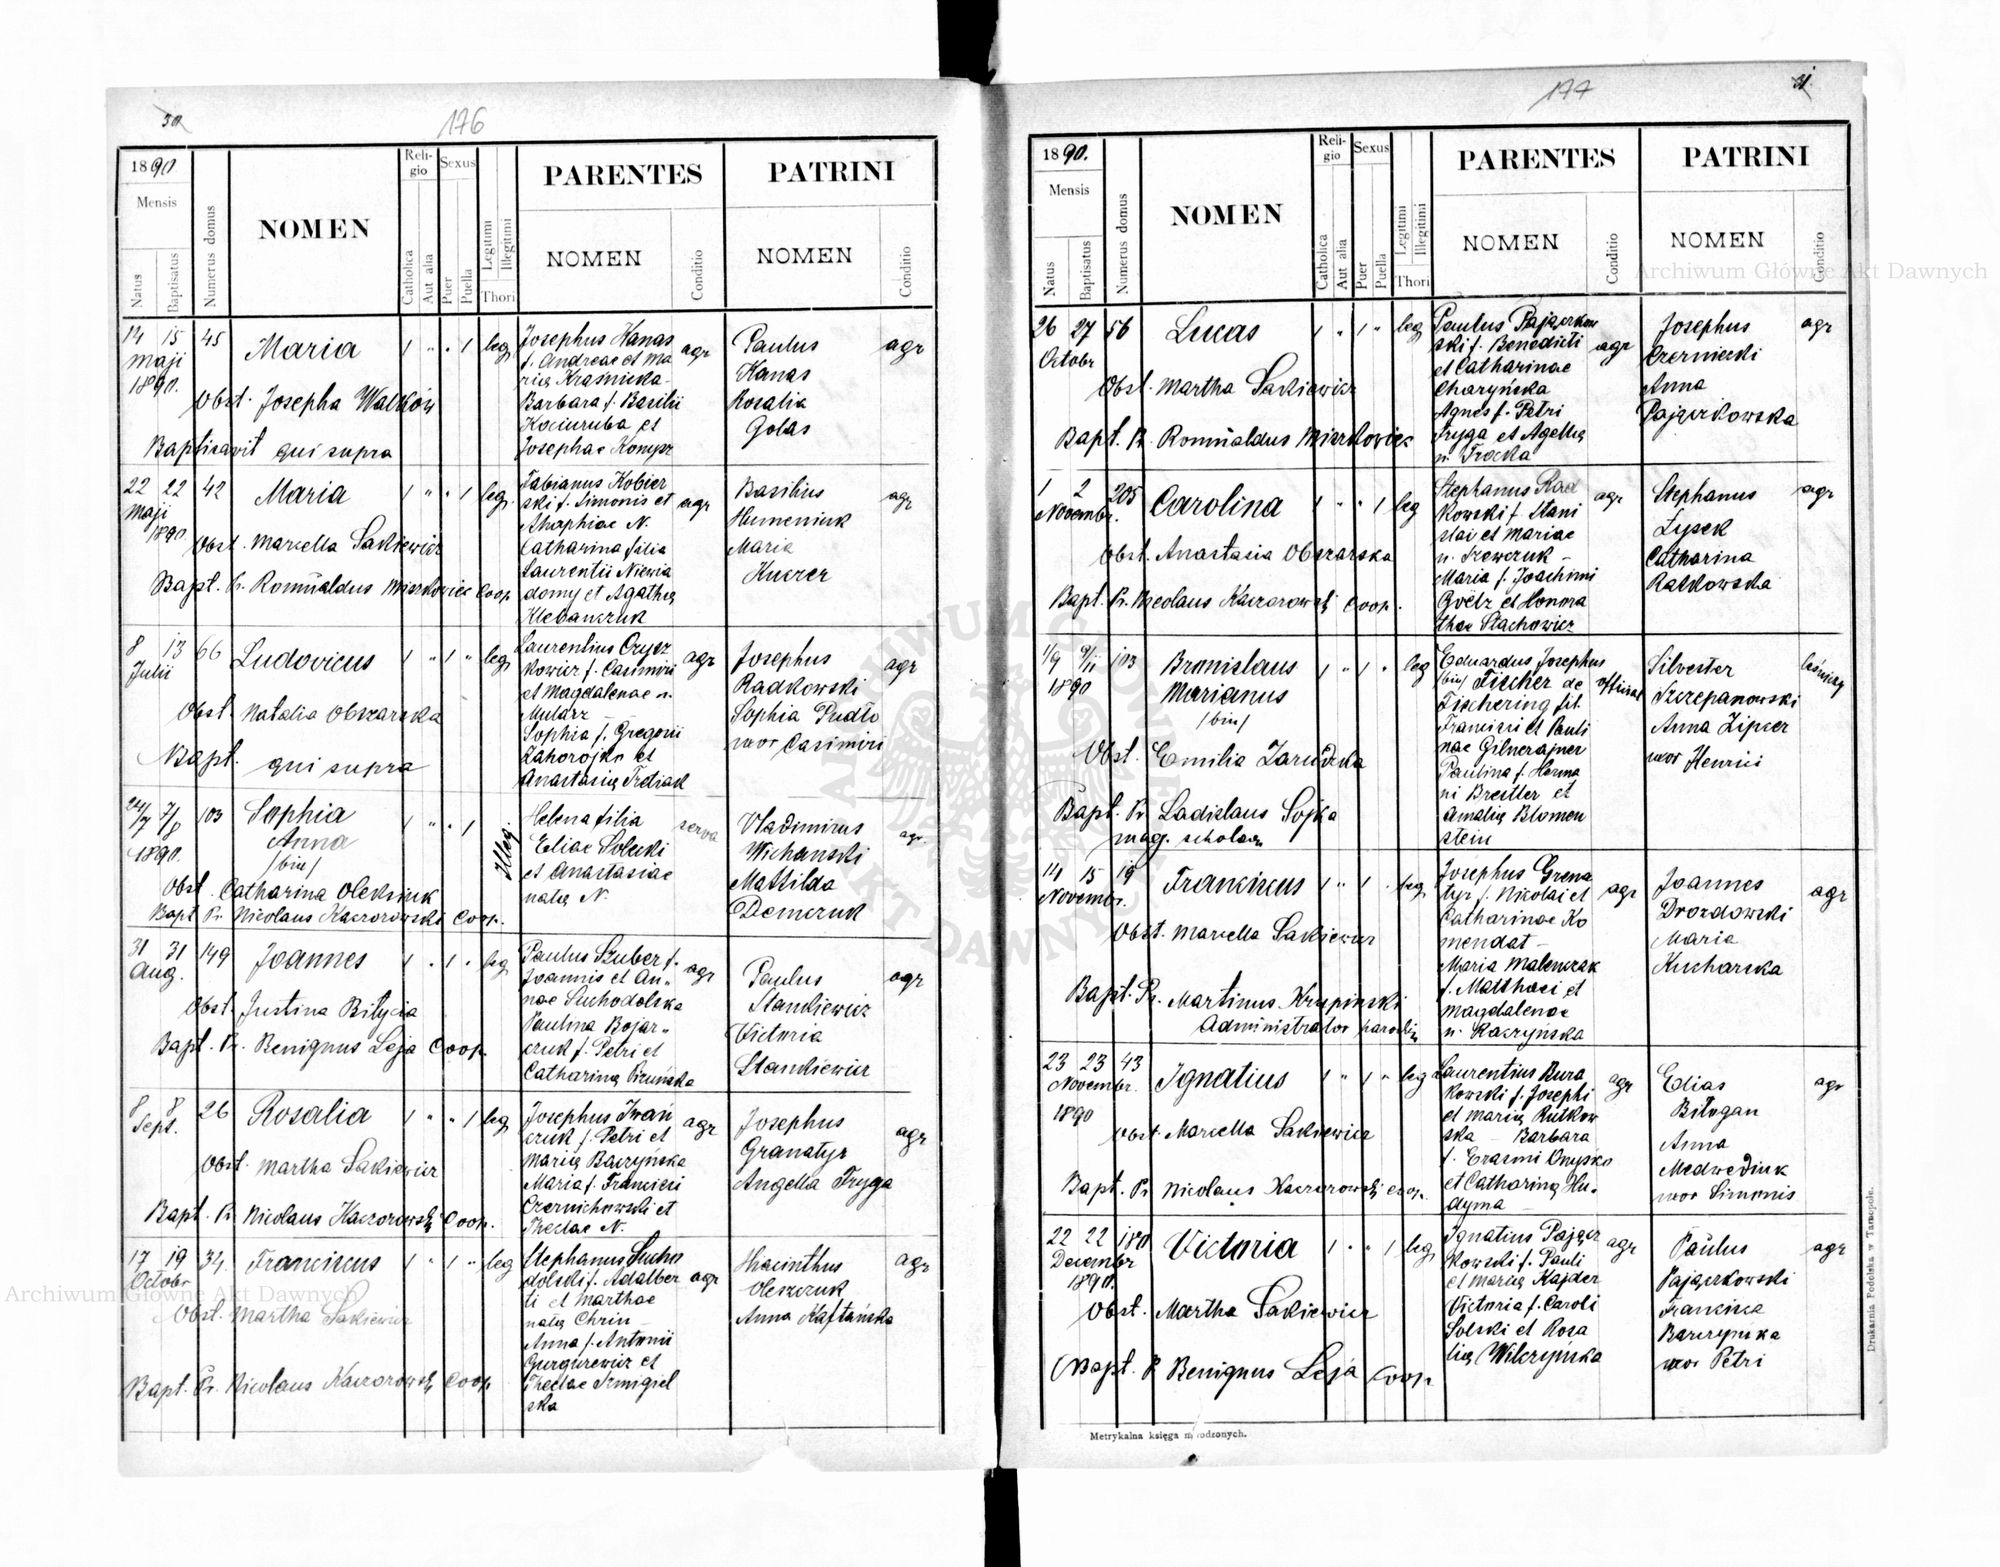 50
176
1890
Mensis
Natus
Baptisatus
Numerus domus
NOMEN
Religio
Catholica
Aut alia
Sexus
Puer
Puella
Legitimi
Illegitimi
Thori
PARENTES
NOMEN
Conditio
PATRINI
NOMEN
Conditio
14 15 45 Maria 1 " " 1 leg
Maji
1890.
Obst. Josepha Walków
Baptisavit qui supra
Josephus Kanas
f. Andreae et Ma
riæ Kraśnicka
Barbara f. Basilii
Kociuruba et
Josephae Konysz
agr
Paulus
Kanas
Rosalia
Golas
agr
22 22 42 Maria 1 " " 1 leg.
Maji
1890
Obst. Marcella Sakiewicz
Bapt. Pr. Romualdus Miszkowiec Coop
Fabianus Kobier
ski f. Simonis et
N.
Catharina filia
Laurentii Niewia
domy et Agathæ
Klebanczuk
agr
Basilius
Humeniuk
Maria
Kuczer
agr
8 13 66 Ludovicus 1 " 1 " leg
Julii
Obst. Natalia Obszarska
Bapt. qui supra
Laurentius Orycz
kowicz f. Casimiri
et Magdalenae n.
Mularz
Sophia f. Gregorii
Zahorojko et
Anastasiæ Tretiak
agr
Josephus
Radkowski
Sophia Pudło
uxor Casimiri
agr
24/7 7/8 103 Sophia 1 " " 1 Illeg.
1890. Anna
/bin/
Obst. Catharina Oleksiuk
Bapt Pr Nicolaus Kaczorowski Coop.
Helena filia
Eliae Solecki
et Anastasiae
natæ N.
serva
Vladimirus
Wichanski
Mathilda
Demczuk
agr.
31 31 149 Joannes 1 " 1 " leg
Aug.
Obst Justina Bitycia
Bapt. Pr. Benignus Leja Coop.
Paulus Szuber f.
Joannis et An"
nae Suchodolska
Paulina Bojar"
czuk f. Petri et
Catharinæ
agr
Paulus
Stankiewicz
Victoria
Stankiewicz
agr
8 8 26 Rosalia 1 " " 1 leg
Sept.
Obst. Martha Sakiewicz
Bapt. Pr Nicolaus Kaczorowski Coop.
Josephus Iwań
czuk f. Petri et
Mariæ Baczyńska
Maria f. Francisci
Czernichowski et
Theclae N.
agr
Josephus
Granatyr
Angella Fryga
agr
17 19 34. Franciscus 1 " 1 " leg
Octobr
Obst. Martha Sakiewicz
Bapt. Pr. Nicolaus Kaczorowski Coop
Stephanus Sucho
dolski f. Adalber
ti et Marthae
natæ Chrin
Anna f. Antonii
Gurgurewicz et
Theclae Szmigiel
ska
agr
Hiacinthus
Oleszczuk
Anna Kaftańska
agr
177
51
1890.
Mensis
Natus
Baptisatus
Numerus domus
NOMEN
Religio
Catholica
Aut alia
Sexus
Puer
Puella
Legitimi
Illegitimi
Thori
PARENTES
NOMEN
Conditio
PATRINI
NOMEN
Conditio
26 27 56 Lucas 1 " 1 " leg
Octobr
Obst. Martha Sakiewicz
Bapt. Pr. Romualdus Miszkowiec
Paulus Pajączkow
ski f. Benedicti
et Catharinae
Charyńska
Agnes f. Petri
Fryga et Agellæ
n. Trocka
agr
Josephus
Czerniecki
Anna
Pajączkowska
agr
1 2 205 Carolina 1 " " 1 leg
Novembr.
Obst. Anastasia Obszarska
Bapt. Pr. Nicolaus Kaczorowski Coop.
Stephanus Rad
kowski f. Stani
slai et Mariae
n. Szewczuk
Maria f. Joachimi
Goëtz et Honora
thae Stachowicz
agr
Stephanus
Łysek
Catharina
Radkowska
agr
1/9 9/11 103 Bronislaus 1 " 1 " leg
1890 Marianus
/bin/
Obst. Emilia Zarudzka
Bapt. Pr Ladislaus Sojka
mag. scholae
Eduardus Josephus
/bin/ Fischer de
Fischering fil.
Francisci et Pauli
nae Gilnerajner
Paulina f. Herma
ni Brettler et
Amaliæ Blomen
stein
official
Silvester
Szczepanowski
Anna Zipser
uxor Henrici
leśniczy
14 15 19 Franciscus 1 " 1 " leg
Novembr.
Obst. Marcella Sakiewicz
Bapt. Pr. Martinus Krupinski
Administrator parochiæ
Josephus Grena
tyr f. Nicolai et
Catharinae Ko
mendat
Maria Malenczak
f. Matthaei et
Magdalenae
n. Kaczyńska
agr
Joannes
Drozdowski
Maria
Kucharska
agr
23 23 43 Ignatius 1 " 1 " leg
Novembr.
1890
Obst. Marcella Sakiewicz
Bapt. Pr Nicolaus Kaczorowski coop.
Laurentius Bura
kowski f. Josephi
et Mariæ Rutkow
ska Barbara
f. Erasmi Onysko
et Catharinæ Hu
dyma
agr
Elias
Biłogan
Anna
Medwediuk
uxor Simonis
agr
22 22 180 Victoria 1 " " 1 leg
Decembr
1890.
Obst. Martha Sakiewicz
Bapt. Pr Benignus Leja Coop
Ignatius Pającz
kowski f. Pauli
et Mariæ Kajder
Victoria f. Caroli
Solski et Rosa
liæ Wilczyńska
agr
Paulus
Pajączkowski
Francisca
Barczyńska
uxor Petri
agr
Metrykalna księga narodzonych.
Drukarnia Podolska w Tarnopolu.
Archiwum Główne Akt Dawnych
Archiwum Główne Akt Dawnych
ARCHIWUM GŁÓWNE AKT DAWNYCH